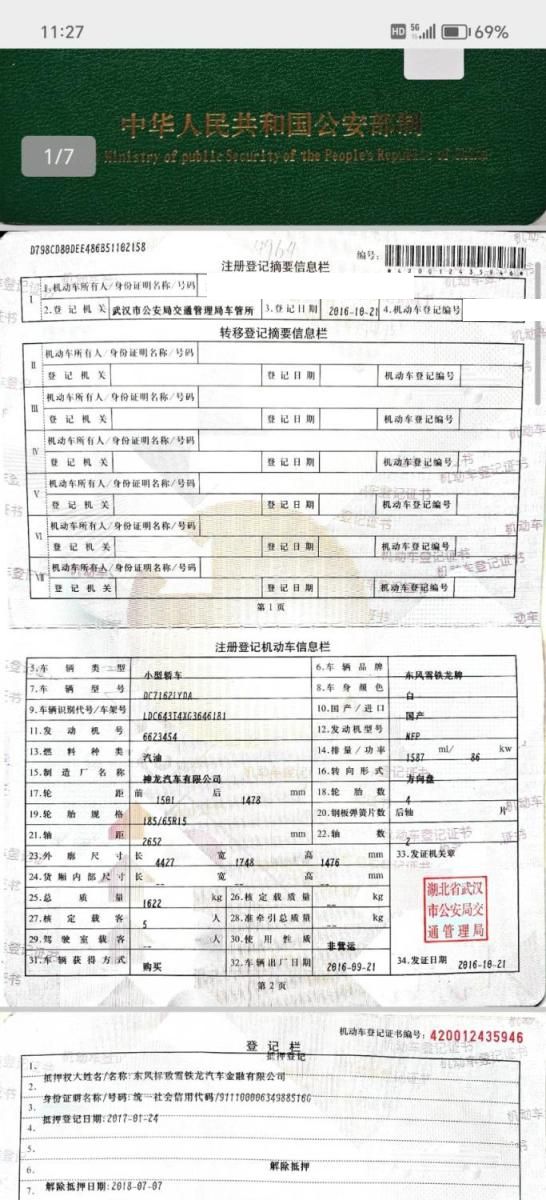 11:27
HD 5G 69%
中华人民共和国公安部制
1/7
Ministry of public Security of the People's Republic of China
D798CD80DEE486B51102158
编号:
*420012435946*
注册登记摘要信息栏
I
1.机动车所有人/身份证明名称/号码
2.登记机关 武汉市公安局交通管理局车管所 3.登记日期 2016-10-21 4.机动车登记编号
转移登记摘要信息栏
II 机动车所有人/身份证明名称/号码
登记机关 登记日期 机动车登记编号
III 机动车所有人/身份证明名称/号码
登记机关 登记日期 机动车登记编号
IV 机动车所有人/身份证明名称/号码
登记机关 登记日期 机动车登记编号
V 机动车所有人/身份证明名称/号码
登记机关 登记日期 机动车登记编号
VI 机动车所有人/身份证明名称/号码
登记机关 登记日期 机动车登记编号
VII 机动车所有人/身份证明名称/号码
登记机关 登记日期 机动车登记编号
第1页
注册登记机动车信息栏
5.车辆类型 小型轿车 6.车辆品牌 东风雪铁龙牌
7.车辆型号 DC7162LYDA 8.车身颜色 白
9.车辆识别代号/车架号 LDC643T4XG3646181 10.国产/进口 国产
11.发动机号 6623454 12.发动机型号 NFP
13.燃料种类 汽油 14.排量/功率 1587 ml/ 86 kw
15.制造厂名称 神龙汽车有限公司 16.转向形式 方向盘
17.轮距 前 1501 后 1478 mm 18.轮胎数 4
19.轮胎规格 185/65R15 20.钢板弹簧片数 后轴 片
21.轴距 2652 mm 22.轴数 2
23.外廓尺寸 长 4427 宽 1748 高 1476 mm 33.发证机关章
24.货厢内部尺寸 长 -- 宽 -- 高 -- mm
25.总质量 1622 kg 26.核定载质量 -- kg
27.核定载客 5 人 28.准牵引总质量 -- kg
29.驾驶室载客 -- 人 30.使用性质 非营运
湖北省武汉
市公安局交
通管理局
31.车辆获得方式 购买 32.车辆出厂日期 2016-09-21 34.发证日期 2016-10-21
第2页
机动车登记证书编号: 420012435946
登记栏
抵押登记
1.
抵押权人姓名/名称:东风标致雪铁龙汽车金融有限公司
2.
身份证明名称/号码:统一社会信用代码/91110000634988516G
3.
抵押登记日期:2017-01-24
4.
5.
6. 解除抵押
7. 解除抵押日期:2018-07-07